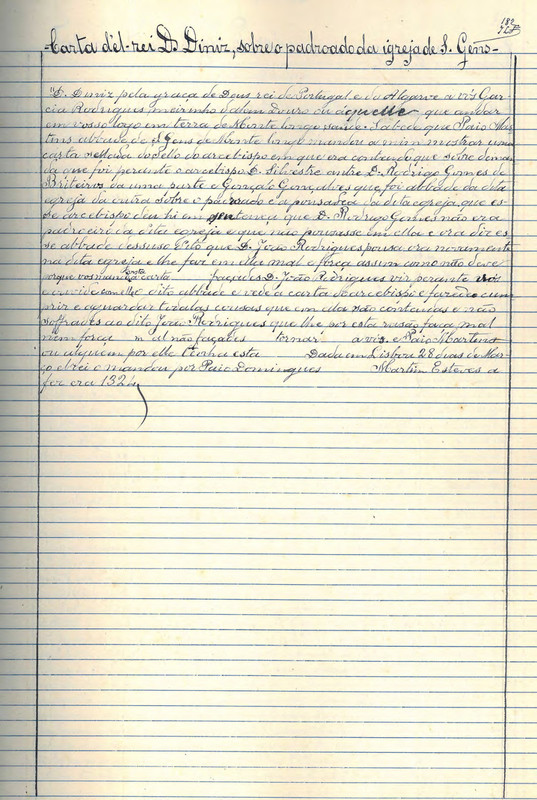 Carta d'el-rei D. Diniz, sobre o padroado da igreja de S. Gens
"D. Diniz pela graça de Deus rei de Portugal e do Algarve a vós Gar-
cia Rodrigues meirinho d'alem Douro ou áquelle que andar
em vosso logo em terra de Monte longo saude. Sabede que Paio Mar-
tins abbade de S. Gens de Monte longo mandou a mim mostrar uma
carta sellada do sello do arcebispo em que era contendo que sobre deman-
da que foi perante o arcebispo D. Silvestre entre D. Rodrigo Gomes de
Briteiros da uma parte e Gonçalo Gonçalves que foi abbade da dita
egreja da outra sobre o padroado e a pousadea da dita egreja, que es-
se arcebispo deu hi em sentença que D. Rodrigo Gomes não era
padroeiro da dita egreja e que não pousasse em ella e ora diz es-
se abbade dessuso dito que D. João Rodrigues pousa ora novamente
na dita egreja e lhe faz em ella mal e força assim como não deve
porque vos mando vista a carta façades D. João Rodrigues vir perante vós
e dito abbade e vede a carta do arcebispo e farede cum-
prir e aguardar todalas cousas que em ella são contendas e não
soffrades ao dito João Rodrigues que lhe por esta rasão faça mal
nem força al não façades tornar a vós. Paio Martins
ou alguem por elle tenha esta Dada em Lisboa 28 dias de Mar-
ço el rei o mandou por Paio Domingues Martim Esteves a
fez era 1324